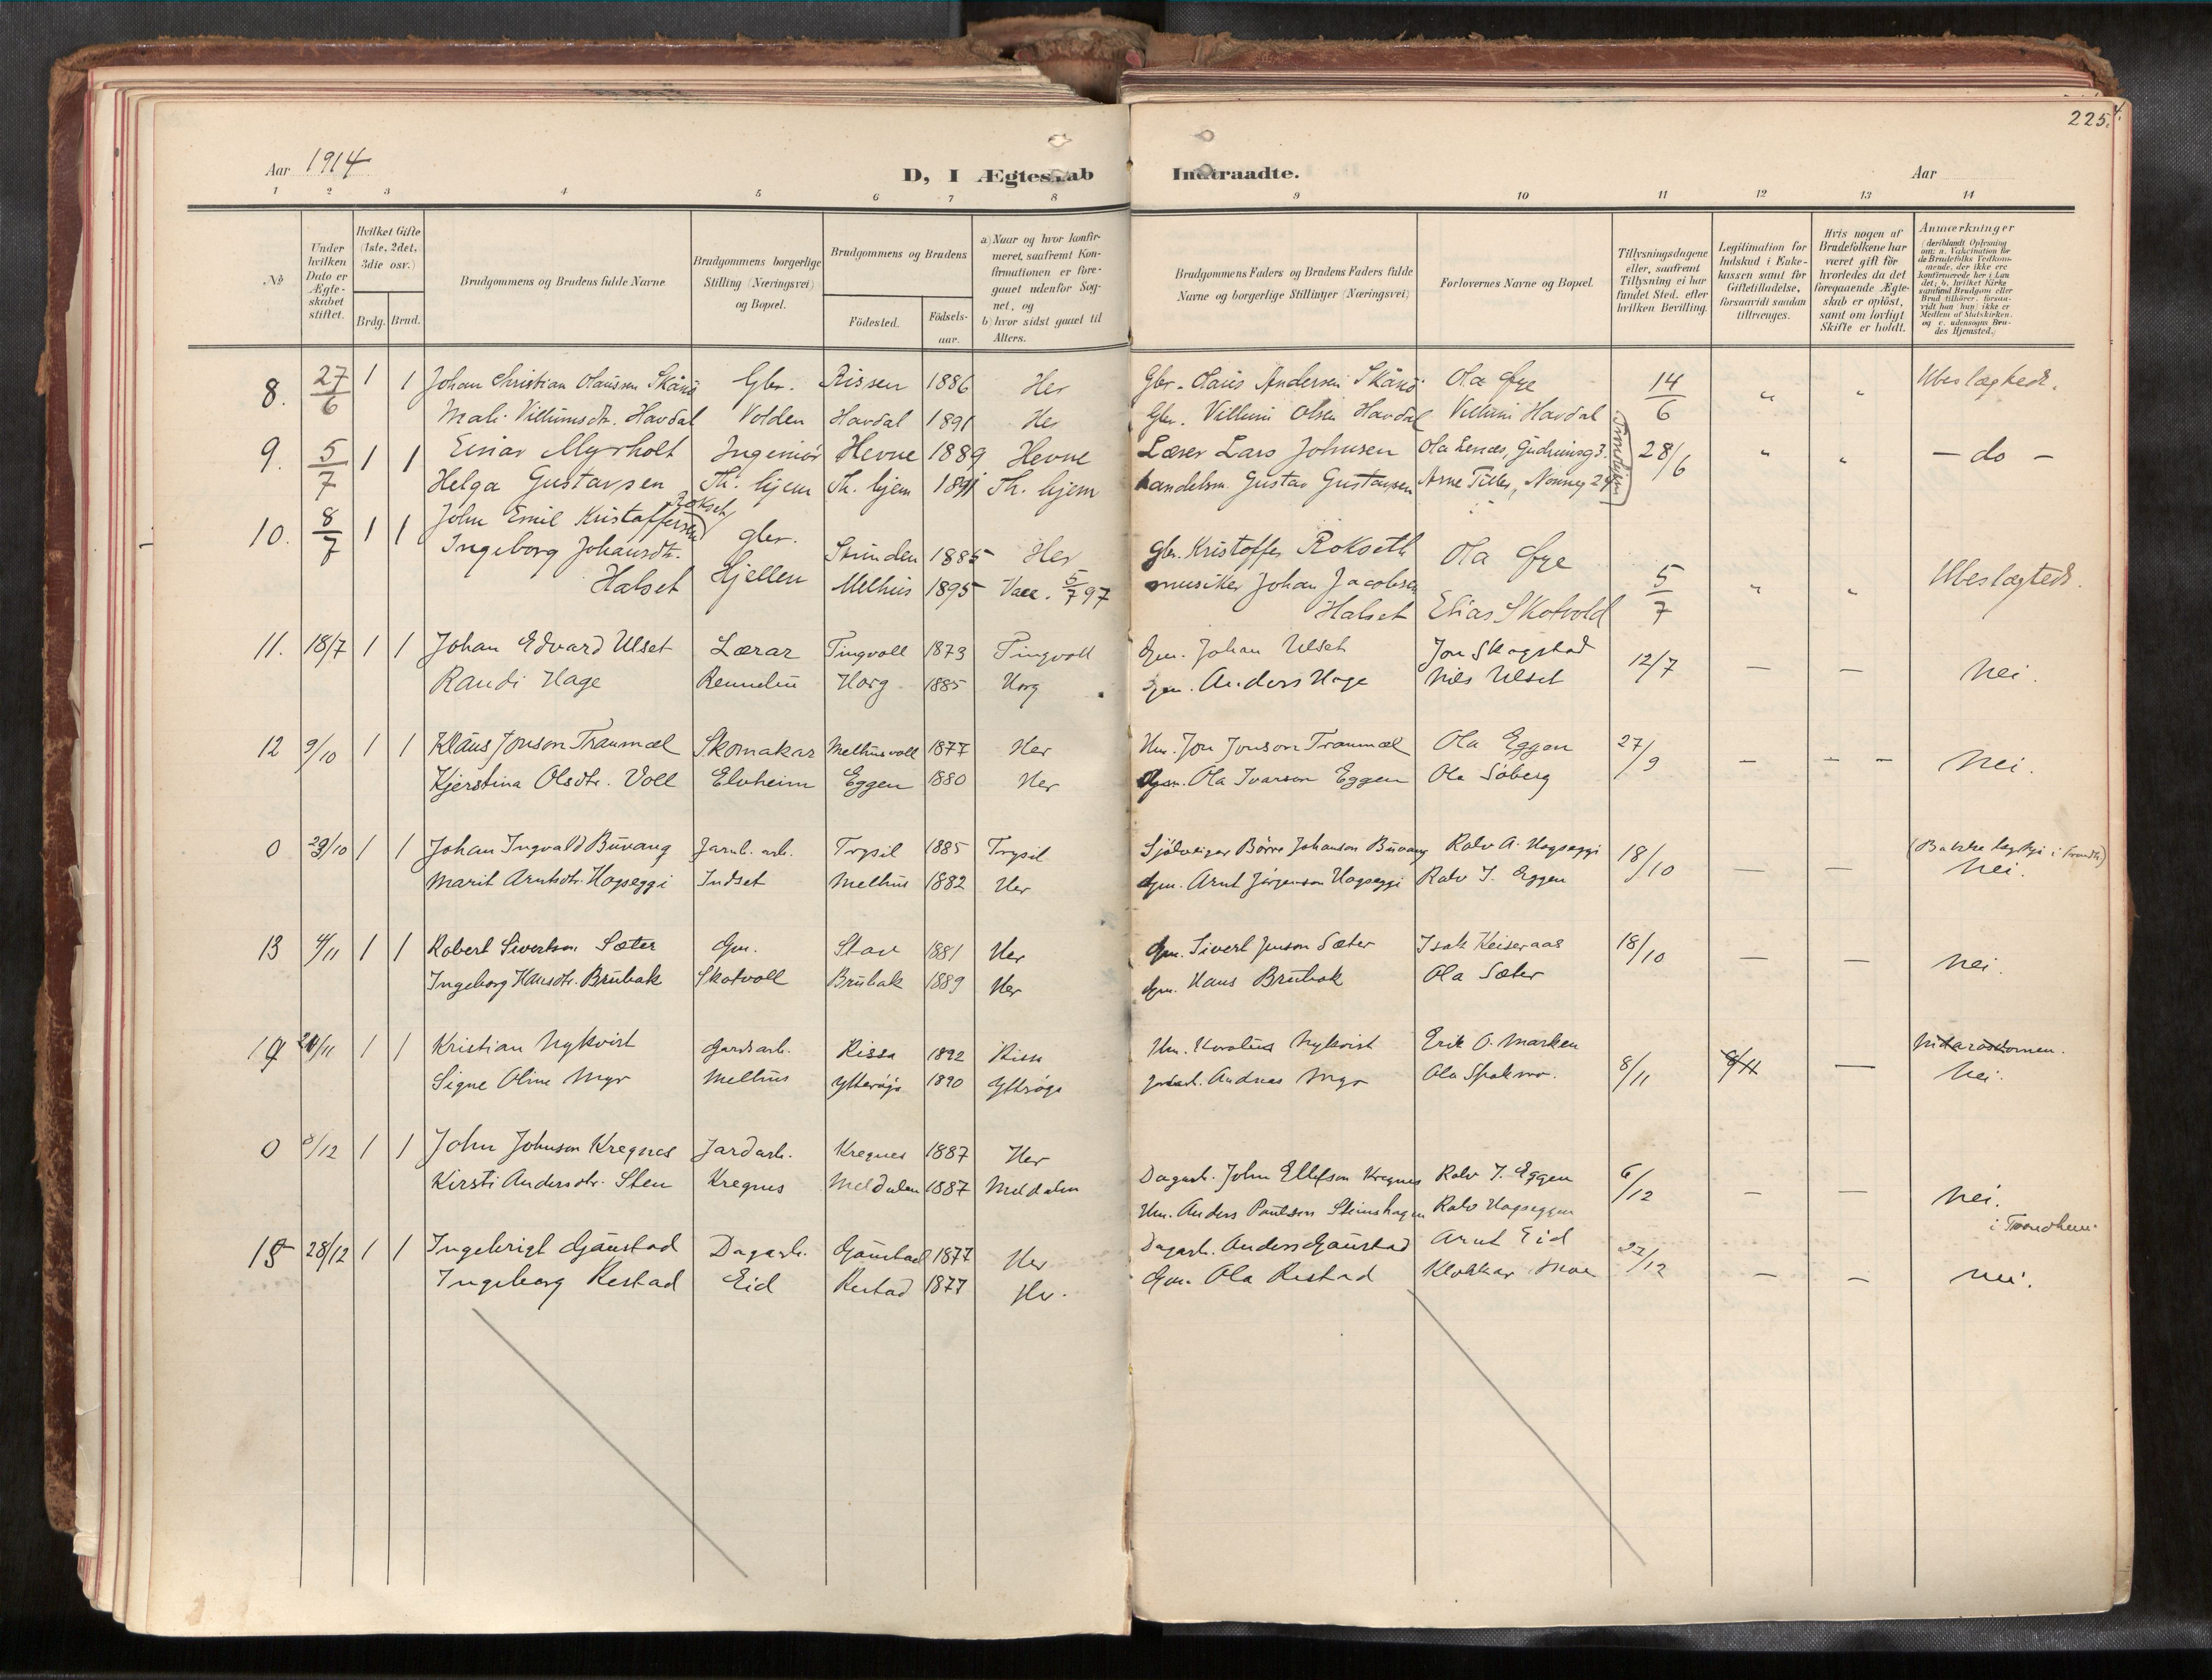 225.
Aar 1914
D, I Ægteskab Indtraadte.
Aar
1 2 3 4 5 6 7 8 9 10 11 12 13 14
No
Under hvilken Dato er Ægteskabet stiftet.
Hvilket Gifte (1ste, 2det, 3die osv.)
Brdg. Brud.
Brudgommens og Brudens fulde Navne
Brudgommens borgerlige Stilling (Næringsvei) og Bopæl.
Brudgommens og Brudens
Födested.
Födselsaar.
a) Naar og hvor konfirmeret, saafremt Konfirmationen er foregaaet udenfor Sognet, og
b) hvor sidst gaaet til Alters.
Brudgommens Faders og Brudens Faders fulde Navne og borgerlige Stillinger (Næringsvei)
Forlovernes Navne og Bopæl.
Tillysningsdagene eller, saafremt Tillysning ei har fundet Sted, efter hvilken Bevilling.
Legitimation for Indskud i Enkekassen samt for Giftetilladelse, forsaavidt saadan tiltrænges.
Hvis nogen af Brudefolkene har været gift för hvorledes da det foregaaende Ægteskab er oplöst, samt om lovligt Skifte er holdt.
Anmærkninger
(deriblandt Oplysning om: a. Vakcination for de Brudefolks Vedkommende, der ikke ere konfirmerede her i Landet; b. hvilket Kirkesamfund Brudgom eller Brud tilhörer, forsaavidt han (hun) ikke er Medlem af Statskirken, og c. udensogns Brudes Hjemsted.)
8. 27/6 1 1 Johan Christian Olaussen Skånö Gbr. Rissen 1886 Her Gbr. Olaus Andersen Skånö Ola Øye 14/6 " " Ubeslægtede.
Mali Villumsdtr. Havdal Volden Havdal 1891 Her Gbr. Villum Olsen Havdal Villum Havdal
9. 5/7 1 1 Einar Myrholt Ingeniør Hevne 1889 Hevne Lærer Lars Johnsen Ola Lenæs, Gudrunsg 3. Trondhjem 28/6 " " - do -
Helga Gustavsen Th. hjem Th. hjem 1891 Th. hjem handelsm. Gustav Gustavsen Arne Tiller, Nonneg 29
10. 8/7 1 1 John Emil Kristoffersen Rokset gbr. Strinden 1885 Her Gbr. Kristoffer Rokseth Ola Øye 5/7 " " Ubeslægtede.
Ingeborg Johansdtr. Halset Hjellen Melhus 1895 Vacc. 5/7 97 musiker Johan Jacobsen Halset Elias Skotvold
11. 18/7 1 1 Johan Edvard Ulset Lærar Tingvoll 1873 Tingvoll Gm. Johan Ulset Jon Skogstad 12/7 — — Nei.
Randi Hage Rennelin Horg 1885 Horg Gm. Anders Hage Nils Ulset
12 9/10 1 1 Klaus Jonson Tranmæl Skomakar Melhusvoll 1877 Her Hm. Jon Jonson Tranmæl Ola Eggen 27/9 — — — Nei.
Kjerstina Olsdtr. Voll Elvheim Eggen 1880 Her Gm. Ola Ivarson Eggen Ola Söberg
0 23/10 1 1 Johan Ingvald Buvang Jarnb. arb. Trysil 1885 Trysil Sjölveigar Börre Johanson Buvang Ralv A. Hagseggi 18/10 — — Nei.
Marit Arntsdtr. Hagseggi Indset Melhus 1882 Her Gm. Arnt Jörgenson Hagseggi Ralv J. Eggen
13 4/11 1 1 Robert Sivertson Sæter Gm. Stav 1881 Her Gm. Sivert Jonson Sæter Isak Keiseraas 18/10 — — Nei.
Ingeborg Hansdtr. Brubak Skotvoll Brubak 1889 Her Gm. Hans Brubak Ola Sæter
14 21/11 1 1 Kristian Nykvist Gardsarb. Rissa 1892 Rissa Hm. Karolius Nykvist Erik O. Marken 8/11 8/11 — Nidarosdomen. Nei.
Signe Oline Myr Melhus Ytterøya 1890 Ytterøya Andreas Myr Ola Spakmo.
0 8/12 1 1 John Johnson Kregnes Jardarb. Kregnes 1887 Her Dagarb. John Ellefson Kregnes Ralv J. Eggen 6/12 — — Nei.
Kirsti Andersdtr. Sten Kregnes Meldalen 1887 Meldalen Hm. Anders Paulson Steinshagen Ralv Hagseggen
15 28/12 1 1 Ingebrigt Gaustad Dagarb. Gaustad 1877 Her Dagarb. Anders Gaustad Arnt Eid 27/12 — — i Trondheim. Nei.
Ingeborg Restad Eid Restad 1877 Her. Gm. Ola Restad Klokkar Moe